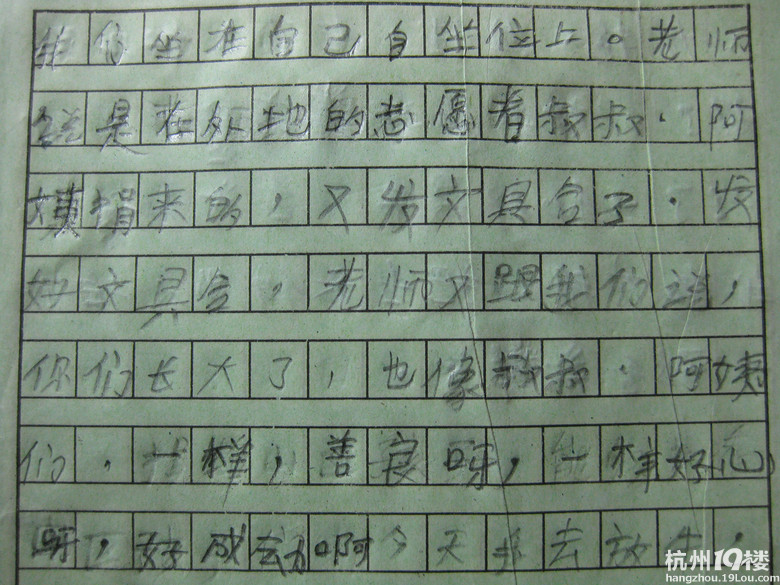 我们坐在自己自坐位上。老师
说是在外地的志愿者叔叔.阿
姨捐来的,又发文具合子.发
好文具合,老师又跟我们说,
你们长大了,也像叔叔.阿姨
们.一样,善良呀,一样好心
呀,好成动啊今天我去放牛.
杭州19楼
hangzhou.19Lou.com